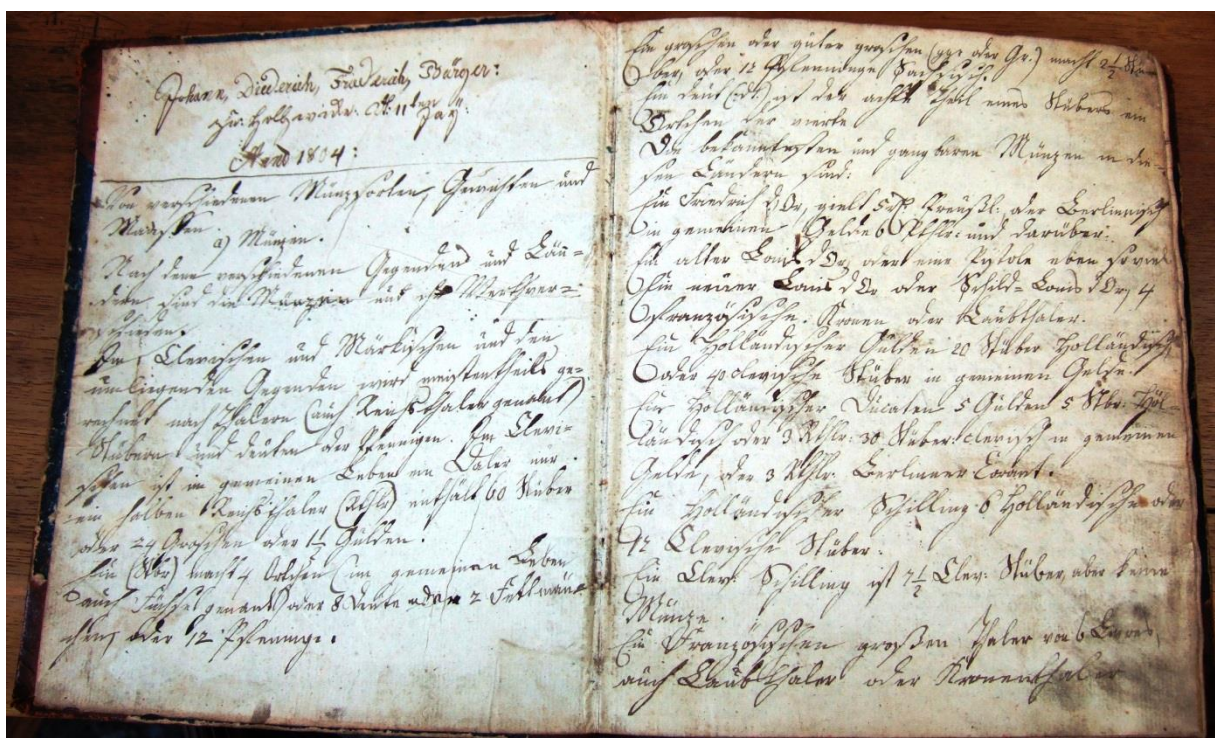 Johann, Diederich, Friederich, Bürger:
zu: Holtzwickede den 11ten Jay:
Anno 1804:
Von verschiedenen Münzsorten, Gewichten und
Maassen.
a) Münzen.
Nach denn verschiedenen Gegenden und Län=
dern, sind die Münzen und ihr Werth ver=
schieden.
Im Clevischen und Märkischen und den
umliegenden Gegenden wird meistentheils ge=
rechnet nach Thalern (auch Reichsthaler genant)
Stübern und deuten oder Pfennigen. Im Clevi=
schen ist im gemeinen Leben ein Daler nur
ein halben Reichsthaler (Rthlr) enthält 60 Stüber
oder 24 Groschen oder 1½ Gulden.
Ein (Stbr) macht 4 Örtchen (im gemeinen Leben
auch Füchse genant) oder 8 Deute oder 2 Fettmän=
chen, oder 12 Pfenninge.
Ein groschen oder guter groschen (ggr oder Gr.) macht 2½ Stü=
ber, oder 12 Pfenninge Sächsisch.
Ein deut (dt:) ist der achte Theil eines Stübers ein
Örtchen der vierte
Die bekanntesten und gangbaren Münzen in die=
sen Ländern sind:
Ein Friedrich d'Or, gielt 5 rth. Preußl: oder Berlinisch
in gemeinen Gelde 6 Rthlr: und darüber:
Ein alter Louis d'Or, oder eine Pistole eben so viel
Ein neuer Louis d'Or oder Schild=Louis d'Or, 4
französische Kronen oder Laubthaler.
Ein Holländischer Gulden 20 Stüber Holländisch,
oder 40 clevische Stüber in gemeinen Gelde.
Ein Holländischer Ducaten 5 Gulden 5 Stbr: Hol=
ländisch oder 3 Rthlr: 30 Stüber: clevisch in gemeinen
Gelde, oder 3 Rthlr. Berliner Corant.
Ein Holländischer Schilling 6 Holländische oder
12 Clevische Stüber.
Ein Clev: Schilling ist 7½ Clev: Stüber, aber keine
Münze.
Ein Französischen großen Thaler von 6 Livres,
auch Laubthaler oder Kronenthaler